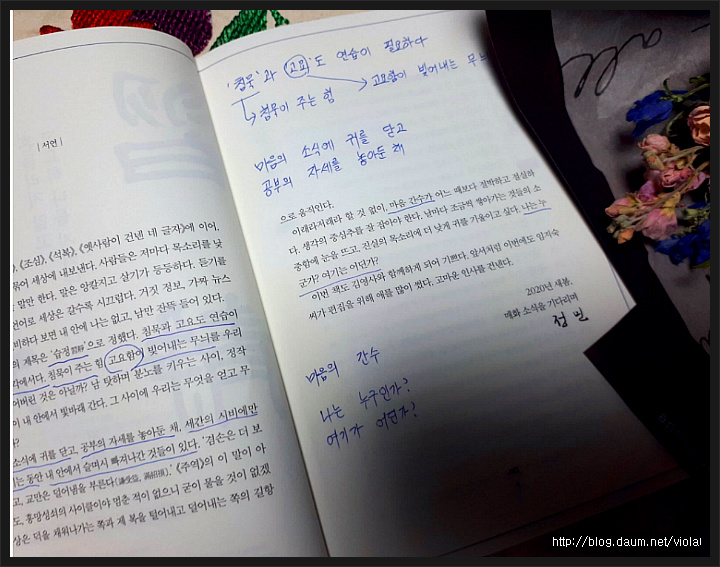 | 서언 |
), 《조심》, 《석복》, 《옛사람이 건넨 네 글자》에 이어,
묶어 세상에 내보낸다. 사람들은 저마다 목소리를 낮
말만 한다. 말은 앙칼지고 살기가 등등하다. 듣기를
언어로 세상은 갈수록 시끄럽다. 거짓 정보, 가짜 뉴스
비하다 보면 내 안에 나는 없고, 남만 잔뜩 들어 있다.
의 제목은 '습정習靜'으로 정했다. 침묵과 고요도 연습이
각에서다. 침묵이 주는 힘, 고요함이 빚어내는 무늬를 우리
어버린 것은 아닐까? 남 탓하며 분노를 키우는 사이, 정작
이 내 안에서 빛바래 간다. 그 사이에 우리는 무엇을 얻고 무
가?
소식에 귀를 닫고, 공부의 자세를 놓아둔 채, 세간의 시비에만
는 동안 내 안에서 슬며시 빠져나간 것들이 있다. '겸손은 더 보
고, 교만은 덜어냄을 부른다謙受益, 滿招損.' 《주역》의 이 말이 아
도, 흥망성쇠의 사이클이야 멈춘 적이 없으니 굳이 물을 것이 없겠
상은 덕을 채워나가는 쪽과 제 복을 털어내고 덜어내는 쪽의 길항
'침묵'과 고요'도 연습이 필요하다
침묵이 주는 힘
고요함이 빚어내는 무늬
마음의 소식에 귀를 닫고
공부의 자세를 놓아둔 채
으로 움직인다.
이래라저래라 할 것 없이, 마음 간수가 어느 때보다 절박하고 절실하
다. 생각의 중심추를 잘 잡아야 한다. 날마다 조금씩 쌓아가는 것들의 소
중함에 눈을 뜨고, 진실의 목소리에 더 낮게 귀를 기울이고 싶다. 나는 누
군가? 여기는 어딘가?
이번 책도 김영사와 함께하게 되어 기쁘다. 앞서처럼 이번에도 임지숙
씨가 편집을 위해 애를 많이 썼다. 고마운 인사를 건넨다.
2020년 새봄,
매화 소식을 기다리며
정 민
마음의 간수
나는 누구인가?
여기가 어딘가?
all
http://blog.daum.net/violal